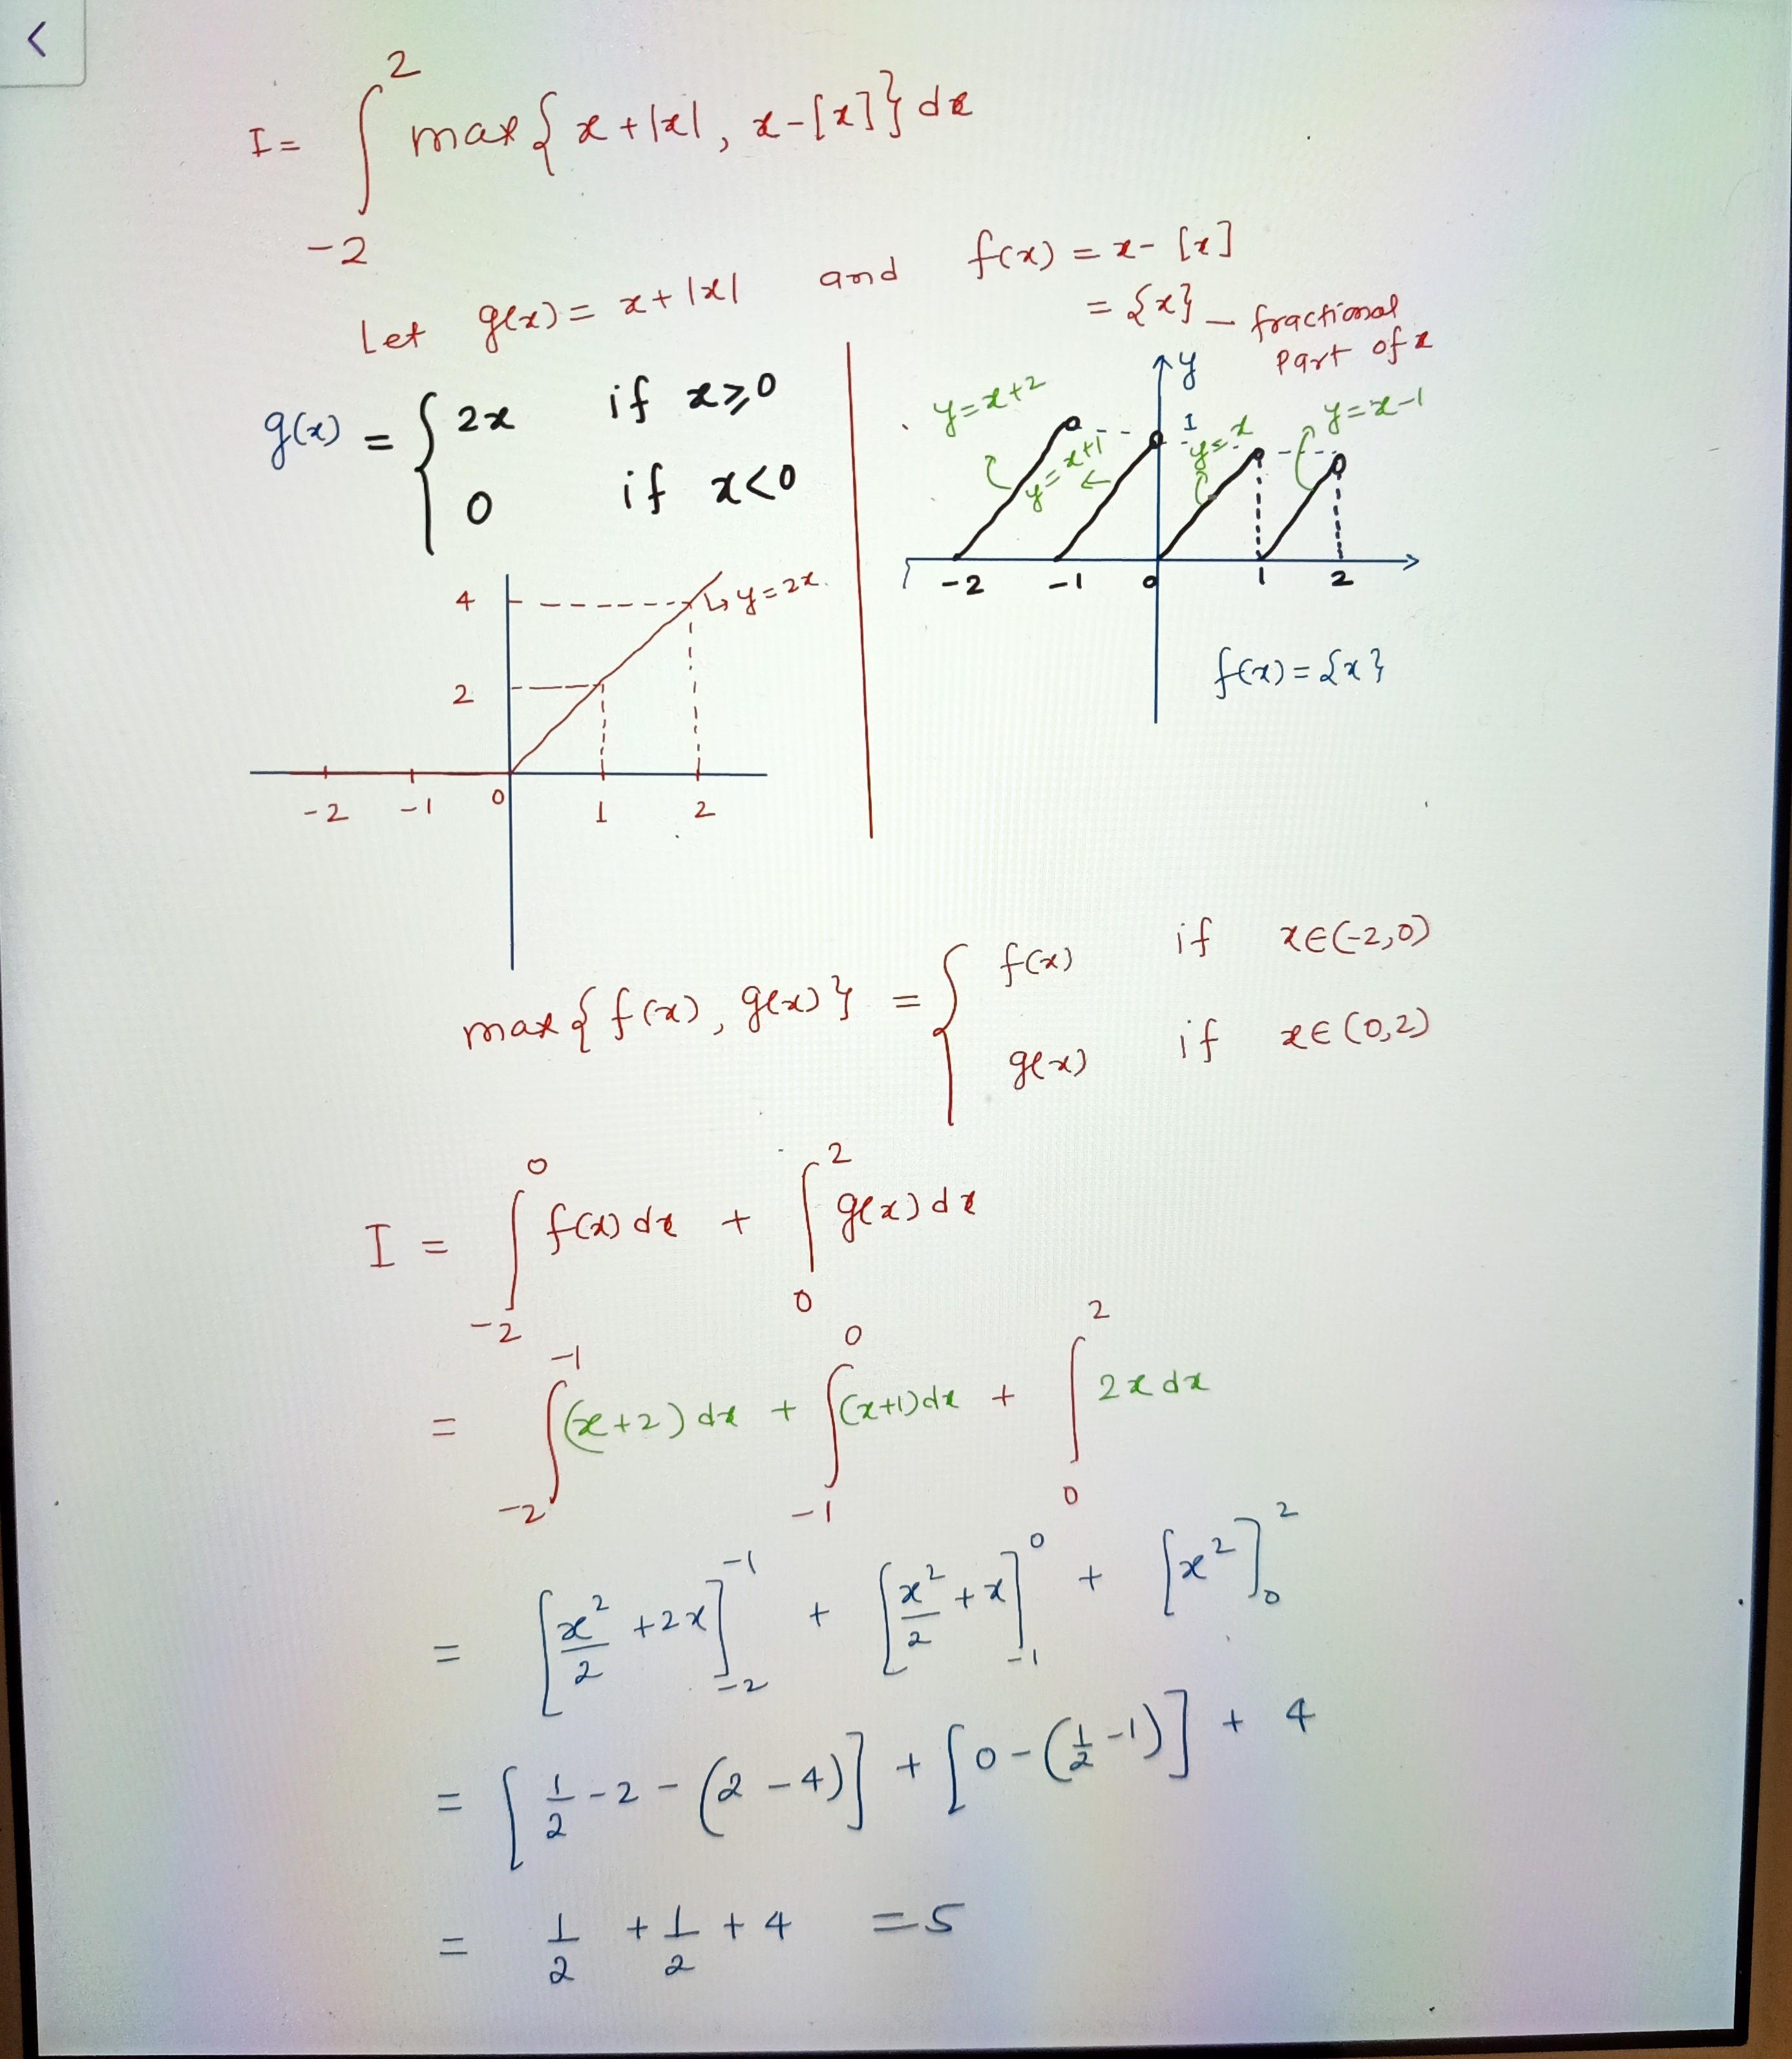 <
I = ∫_{-2}^{2} max{x+|x|, x-[x]}dx
Let g(x) = x+|x| and f(x) = x-[x]
= {x} - fractional
Part of x
g(x) = { 2x if x≥0
0 if x<0
y
y=x+2
y=x+1
1
y=x
y=x-1
-2 -1 0 1 2
f(x)={x}
4
y=2x.
2
-2 -1 0 1 2
max{f(x), g(x)} = { f(x) if x∈(-2,0)
g(x) if x∈(0,2)
I = ∫_{-2}^{0} f(x)dx + ∫_{0}^{2} g(x)dx
= ∫_{-2}^{-1} (x+2)dx + ∫_{-1}^{0} (x+1)dx + ∫_{0}^{2} 2xdx
= [x²/2 +2x]_{-2}^{-1} + [x²/2 +x]_{-1}^{0} + [x²]_{0}^{2}
= [1/2 -2 - (2-4)] + [0-(1/2 -1)] + 4
= 1/2 + 1/2 + 4 = 5